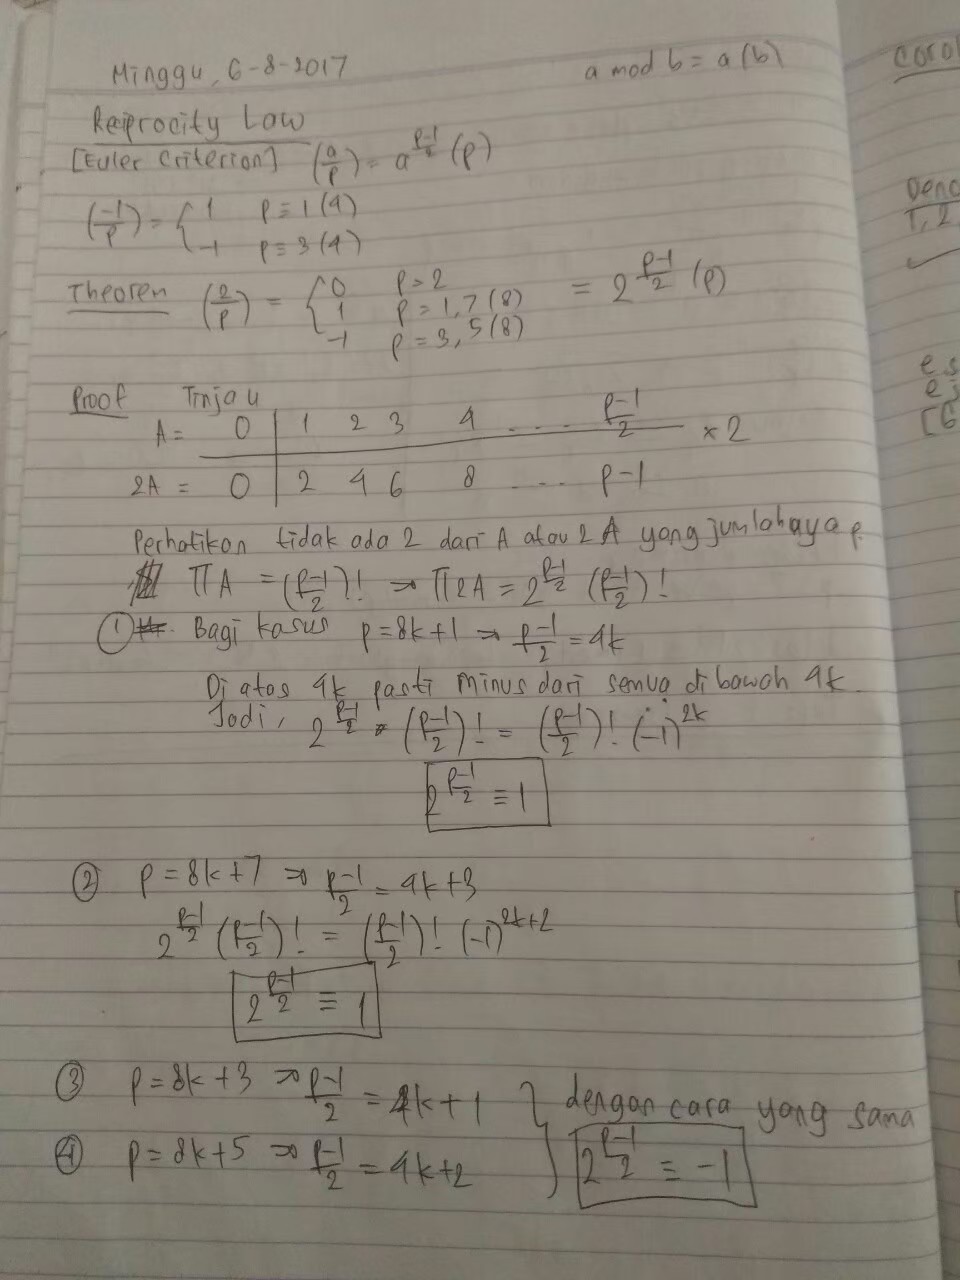 Minggu, 6-8-2017
a mod b = a (b)
Reiprocity Law
[Euler Criterion] (a/p) = a^((p-1)/2) (p)
(-1/p) = { 1 p ≡ 1 (4)
-1 p ≡ 3 (4)
Theorem (2/p) = { 0 p = 2
1 p = 1, 7 (8)
-1 p = 3, 5 (8)
= 2^((p-1)/2) (p)
Proof Tinjau
A = 0 | 1 2 3 4 .... (p-1)/2 × 2
2A = 0 | 2 4 6 8 .... p-1
Perhatikan tidak ada 2 dari A atau 2A yang jumlahnya p.
∏A = ((p-1)/2)! ⇒ ∏2A = 2^((p-1)/2) ((p-1)/2)!
① Bagi kasus p = 8k+1 ⇒ (p-1)/2 = 4k
Di atas 4k pasti minus dari semua di bawah 4k.
Jadi, 2^((p-1)/2) · ((p-1)/2)! = ((p-1)/2)! (-1)^(2k)
2^((p-1)/2) ≡ 1
② p = 8k+7 ⇒ (p-1)/2 = 4k+3
2^((p-1)/2) ((p-1)/2)! = ((p-1)/2)! (-1)^(2k+2)
2^((p-1)/2) ≡ 1
③ p = 8k+3 ⇒ (p-1)/2 = 4k+1 } dengan cara yang sama
④ p = 8k+5 ⇒ (p-1)/2 = 4k+2 2^((p-1)/2) ≡ -1